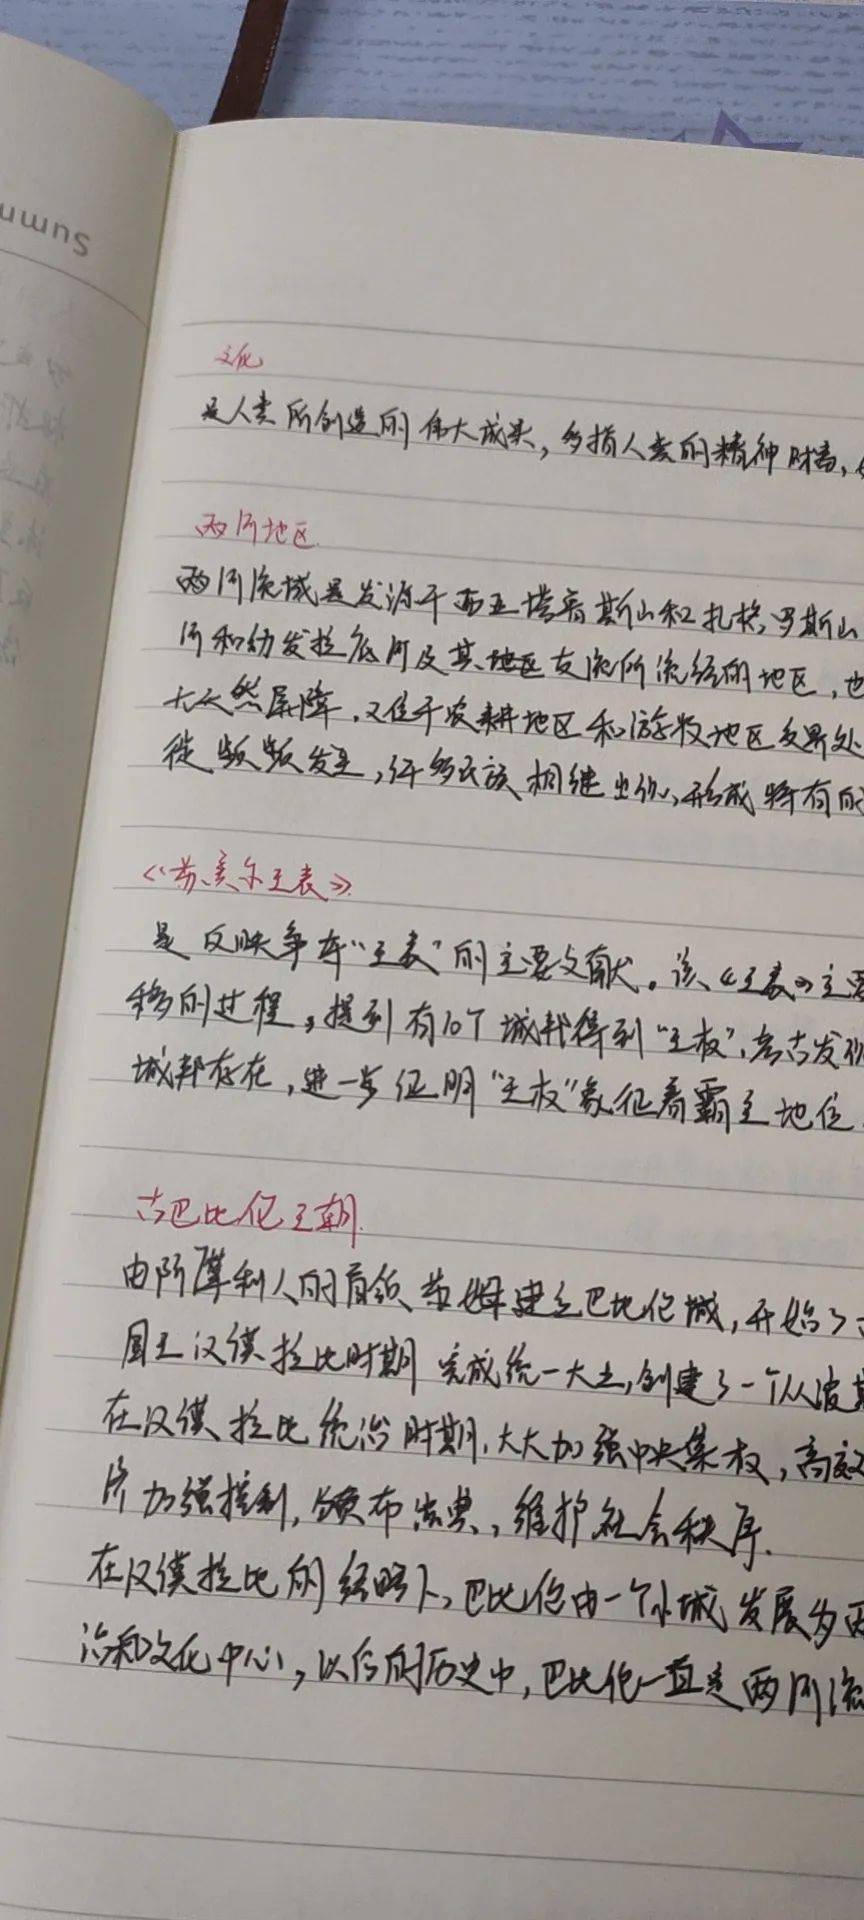 Summ
文化
是人类所创造的伟大成果，多指人类的精神财富，
两河地区
两河流域是发源于西亚塔鲁斯山和扎格罗斯山
河和幼发拉底河及其地区支流所流经的地区，也
大天然屏障，又位于农耕地区和游牧地区交界处
徙频频发生，许多民族相继出现，形成特有的
《苏美尔王表》
是反映争夺“王表”的主要文献。该《王表》主要
移的过程，提到有10个城邦得到“王权”，考古发现
城邦存在，进一步证明“王权”象征着霸主地位
古巴比伦王朝
由阿摩利人的首领苏姆建立巴比伦城，开始了古
国王汉谟拉比时期完成统一大业，创建了一个从波斯
在汉谟拉比统治时期，大大加强中央集权，高效
济加强控制，颁布法典，维护社会秩序.
在汉谟拉比的经略下，巴比伦由一个小城发展为两
治和文化中心，以后的历史中，巴比伦一直是两河流